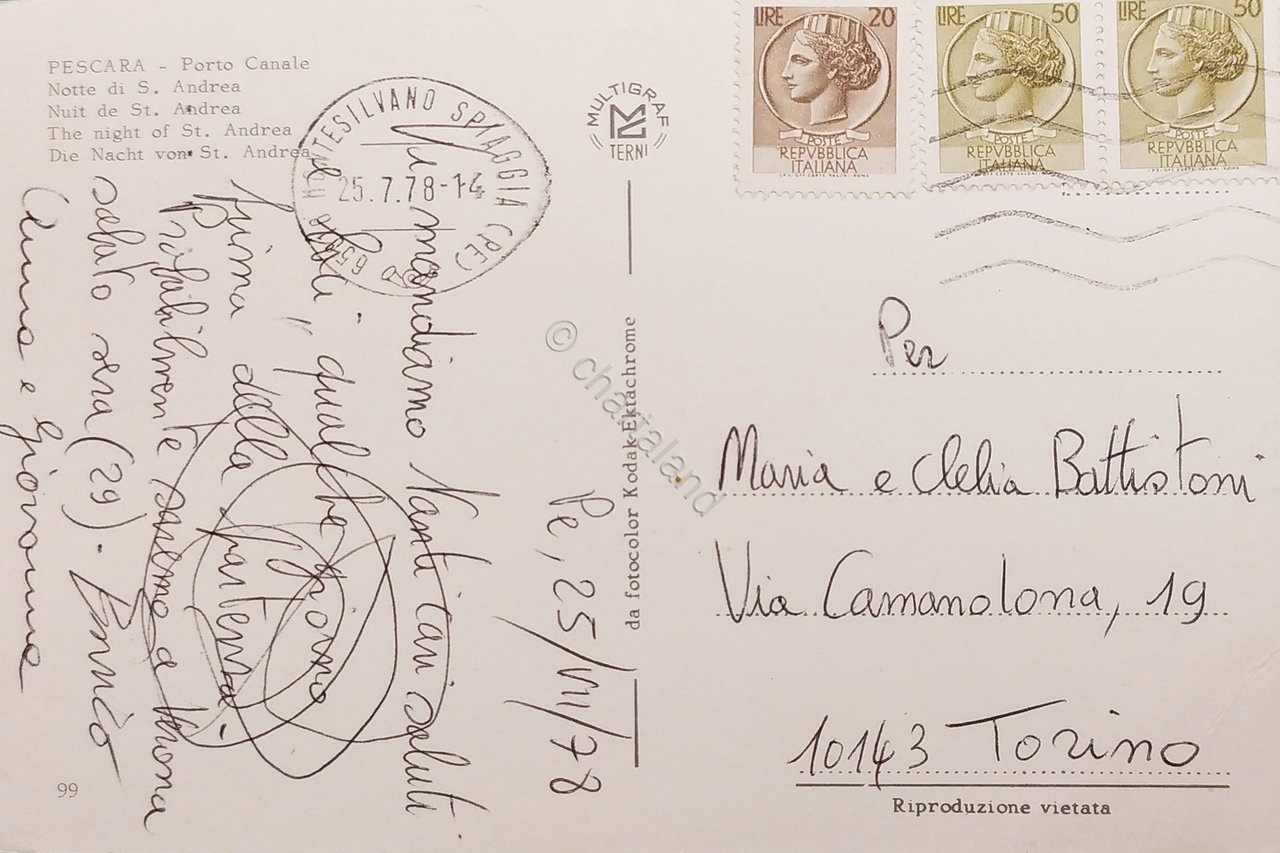 PESCARA - Porto Canale
Notte di S. Andrea
Nuit de St. Andrea
The night of St. Andrea
Die Nacht von St. Andrea
MONTESILVANO SPIAGGIA (PE)
25.7.78-14
MULTIGRAF
TERNI
LIRE 20
POSTE
REPVBBLICA
ITALIANA
LIRE 50
POSTE
REPVBBLICA
ITALIANA
LIRE 50
POSTE
REPVBBLICA
ITALIANA
Pe, 25/VII/78
Vi mandiamo tanti cari saluti
qualche giorno
prima della partenza.
Probabilmente saremo a
sabato sera (29). Enrico
Anna e Giovanna
da fotocolor Kodak Ektachrome
© chartaland
Per
Maria e Clelia Battistoni
Via Camandona, 19
10143 Torino
Riproduzione vietata
99